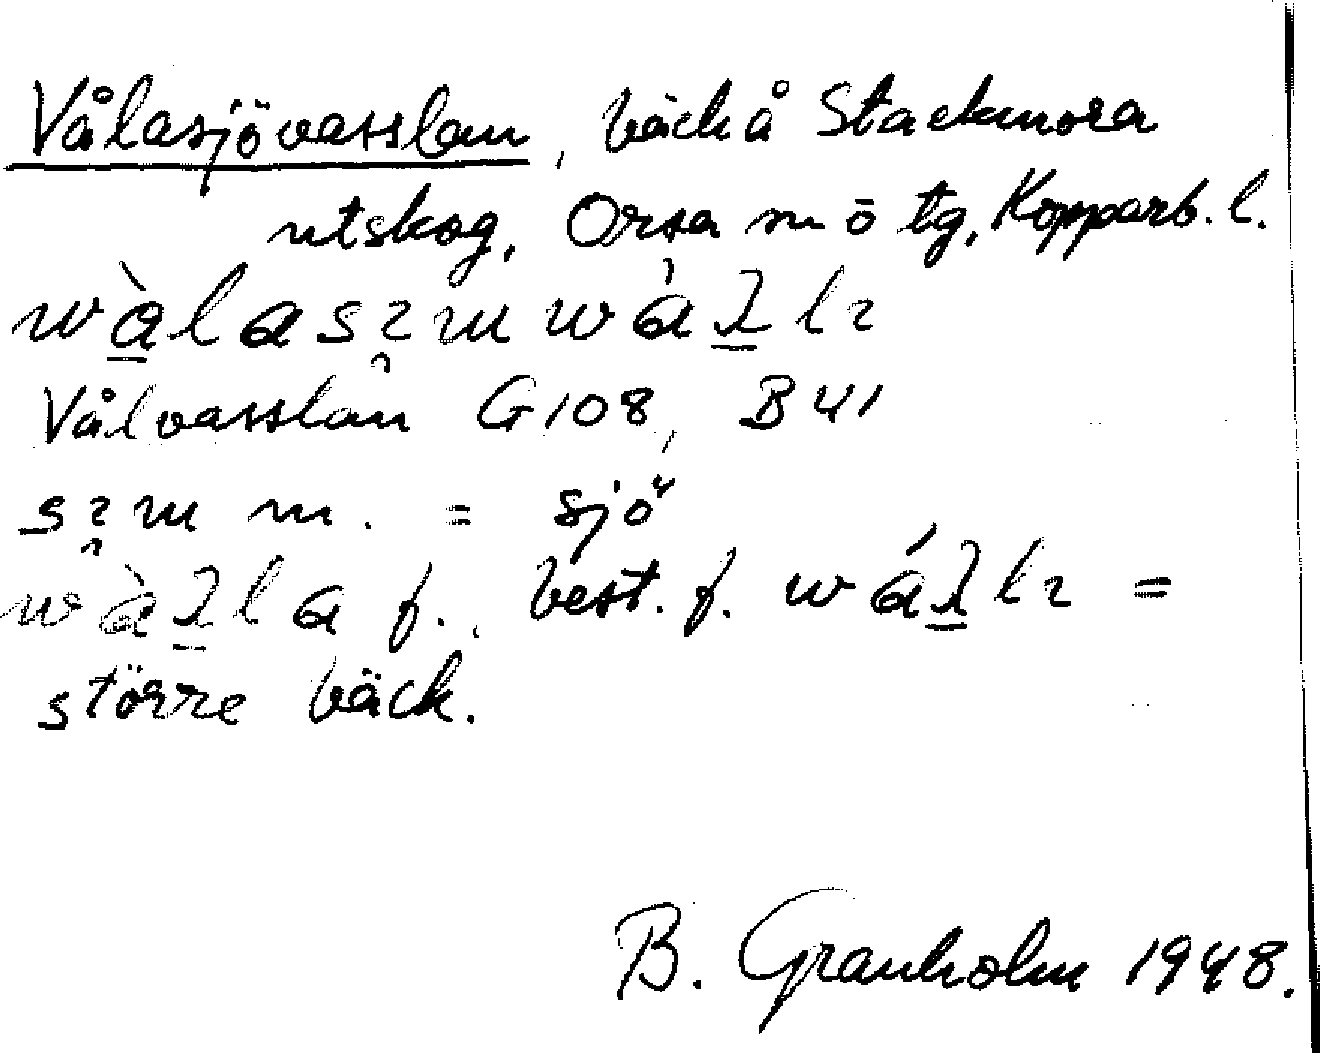 Vålasjövasslan, bäck å Stackmora
utskog, Orsa sn ö tg, Kopparb. l.
Vålvasslan G108, B41
m. = sjö
f., best. f. =
större bäck.
B. Granholm 1948.